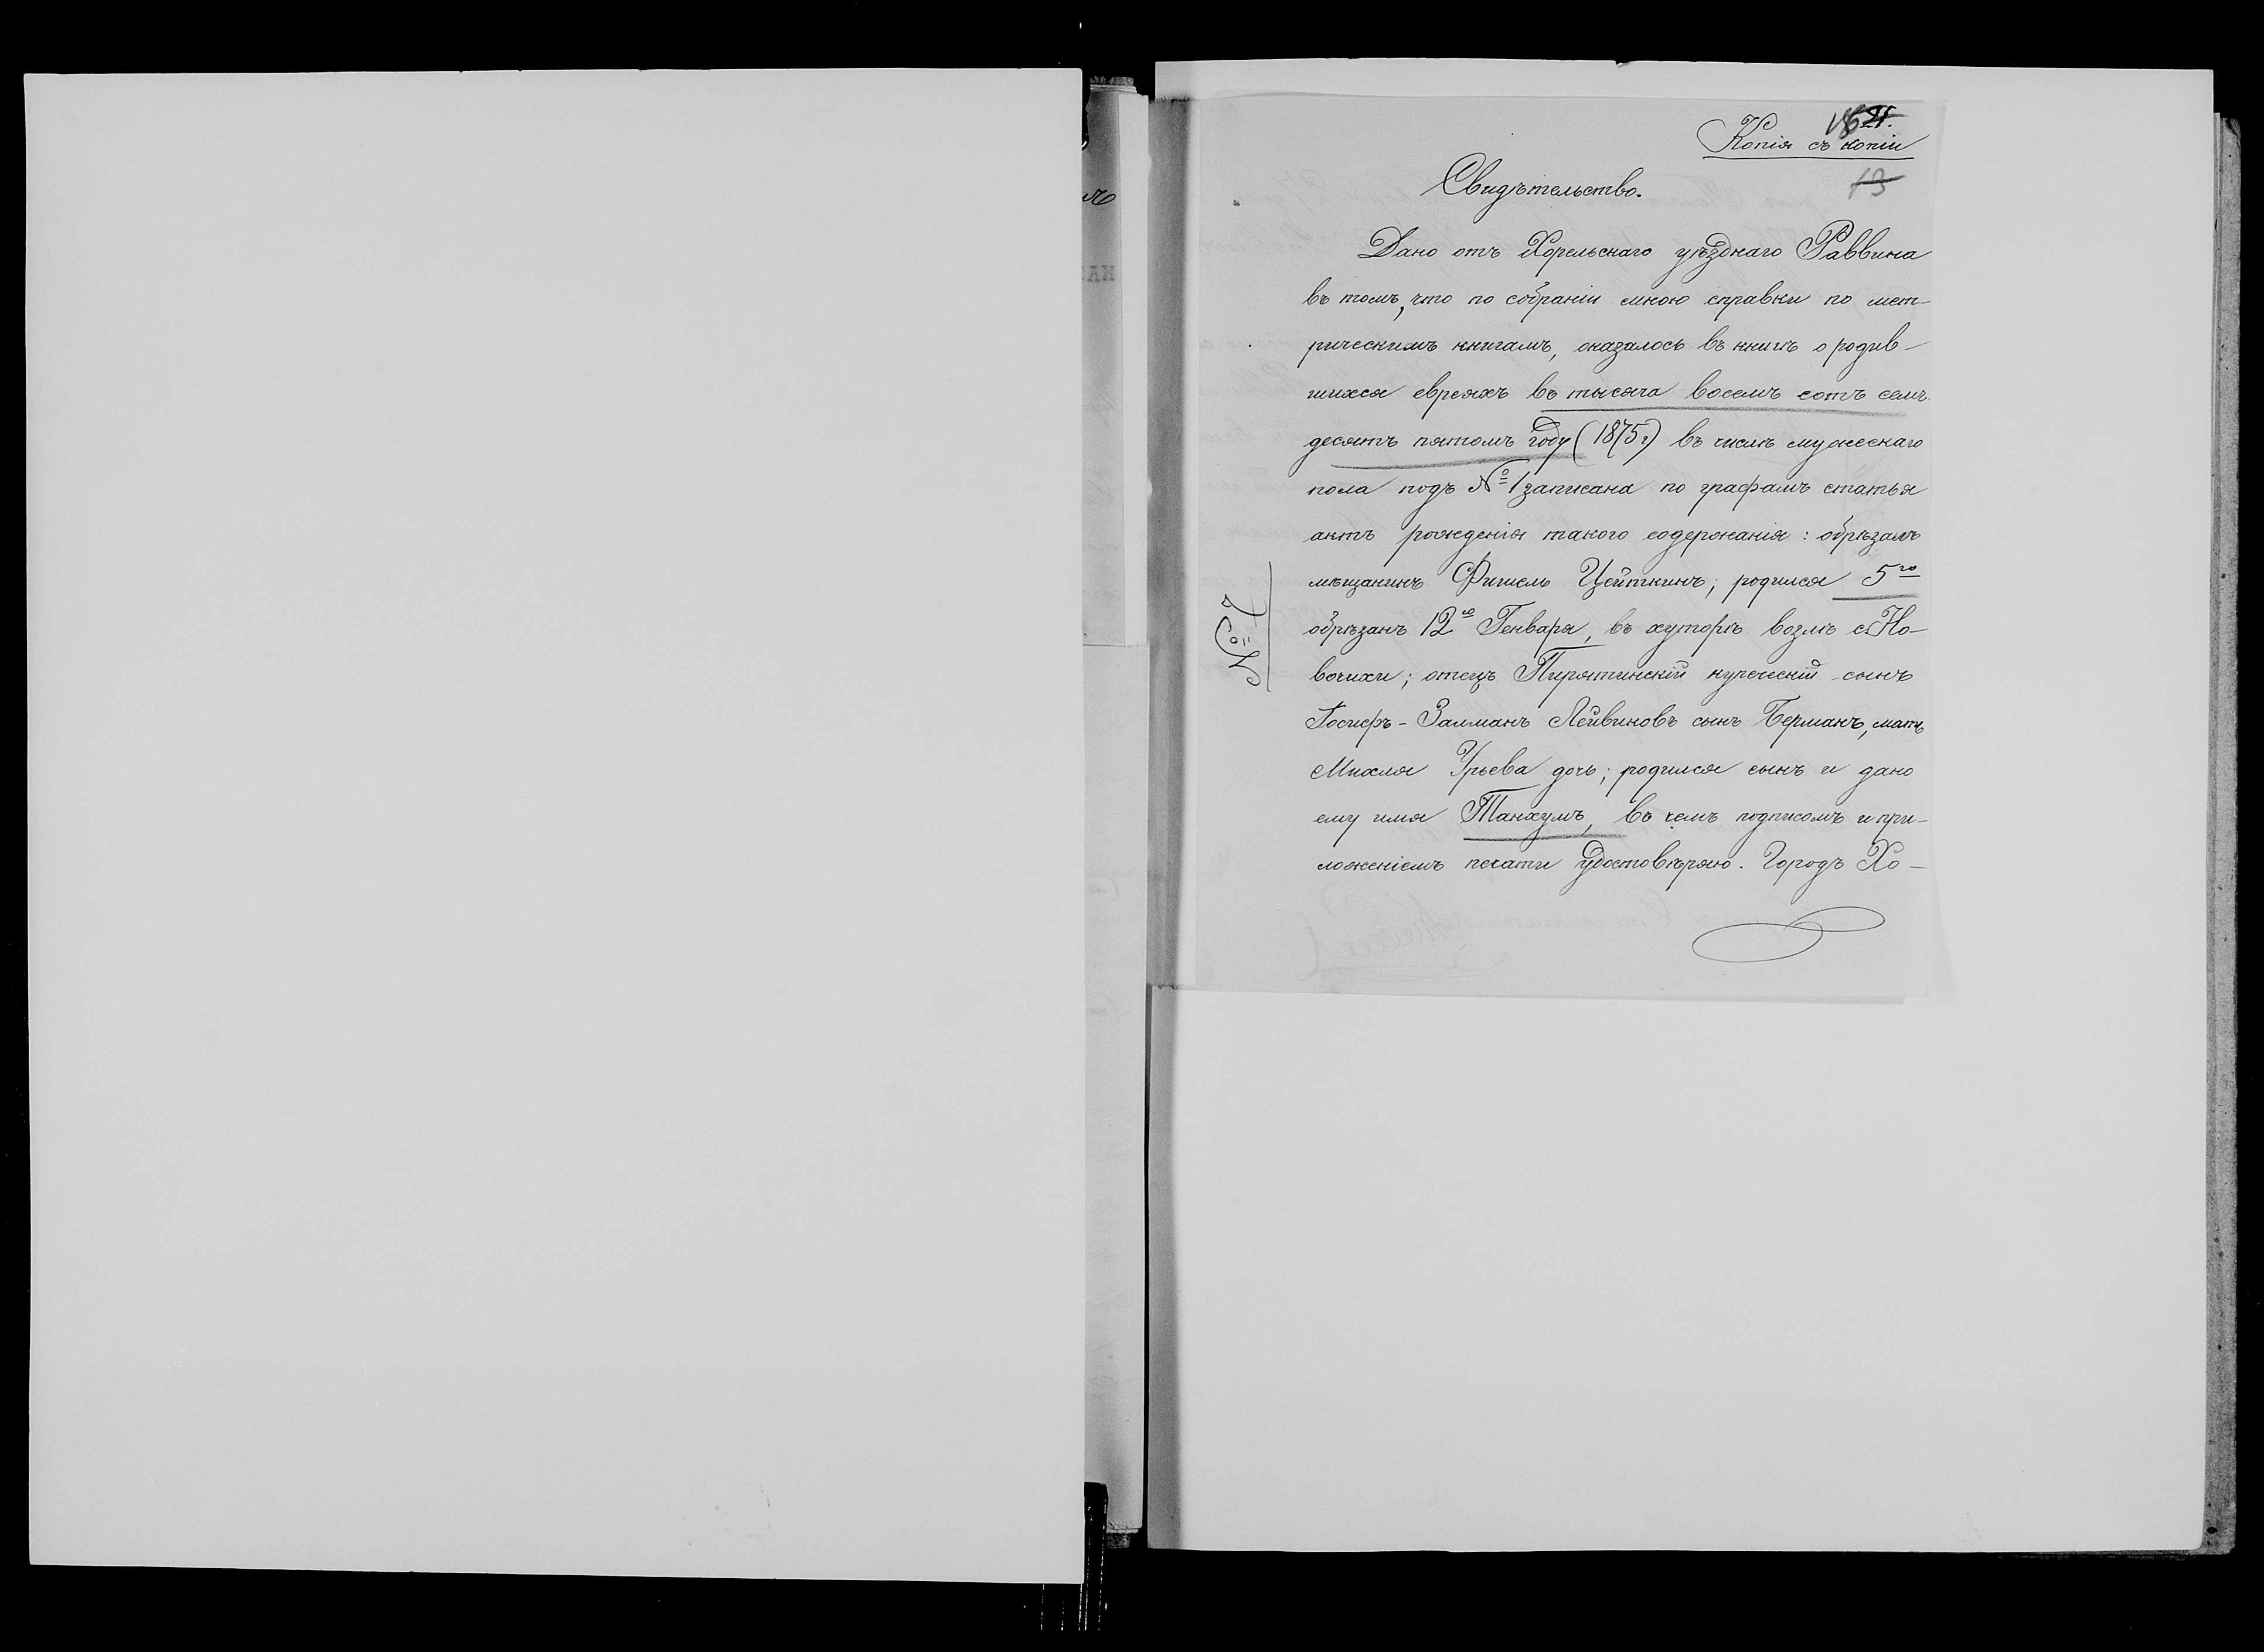 Копія съ копіи
13
Свидѣтельство.
Дано отъ Хорельскаго уѣзднаго Раввина
въ томъ, что по собраніи мною справки по мет-
рическимъ книгамъ, оказалось въ книгѣ о родив-
шихся евреяхъ въ тысяча восемь сотъ семь
десятъ пятомъ году (1875 г) въ числѣ мужескаго
пола подъ № 1 записана по графамъ статья
актъ рожденія такого содержанія: обрѣзалъ
мѣщанинъ Фишель Цейткинъ; родился 5го
обрѣзанъ 12го Генваря, въ хуторѣ возлѣ с. Но-
вочихи; отецъ Пирятинскій купеческій сынъ
Іосифъ-Залманъ Лейвиновъ сынъ Берманъ, мать
Михля Урьева дочь; родился сынъ и дано
ему имя Танхумъ, въ чемъ подписомъ и при-
ложеніемъ печати удостовѣряю. Городъ Хо-